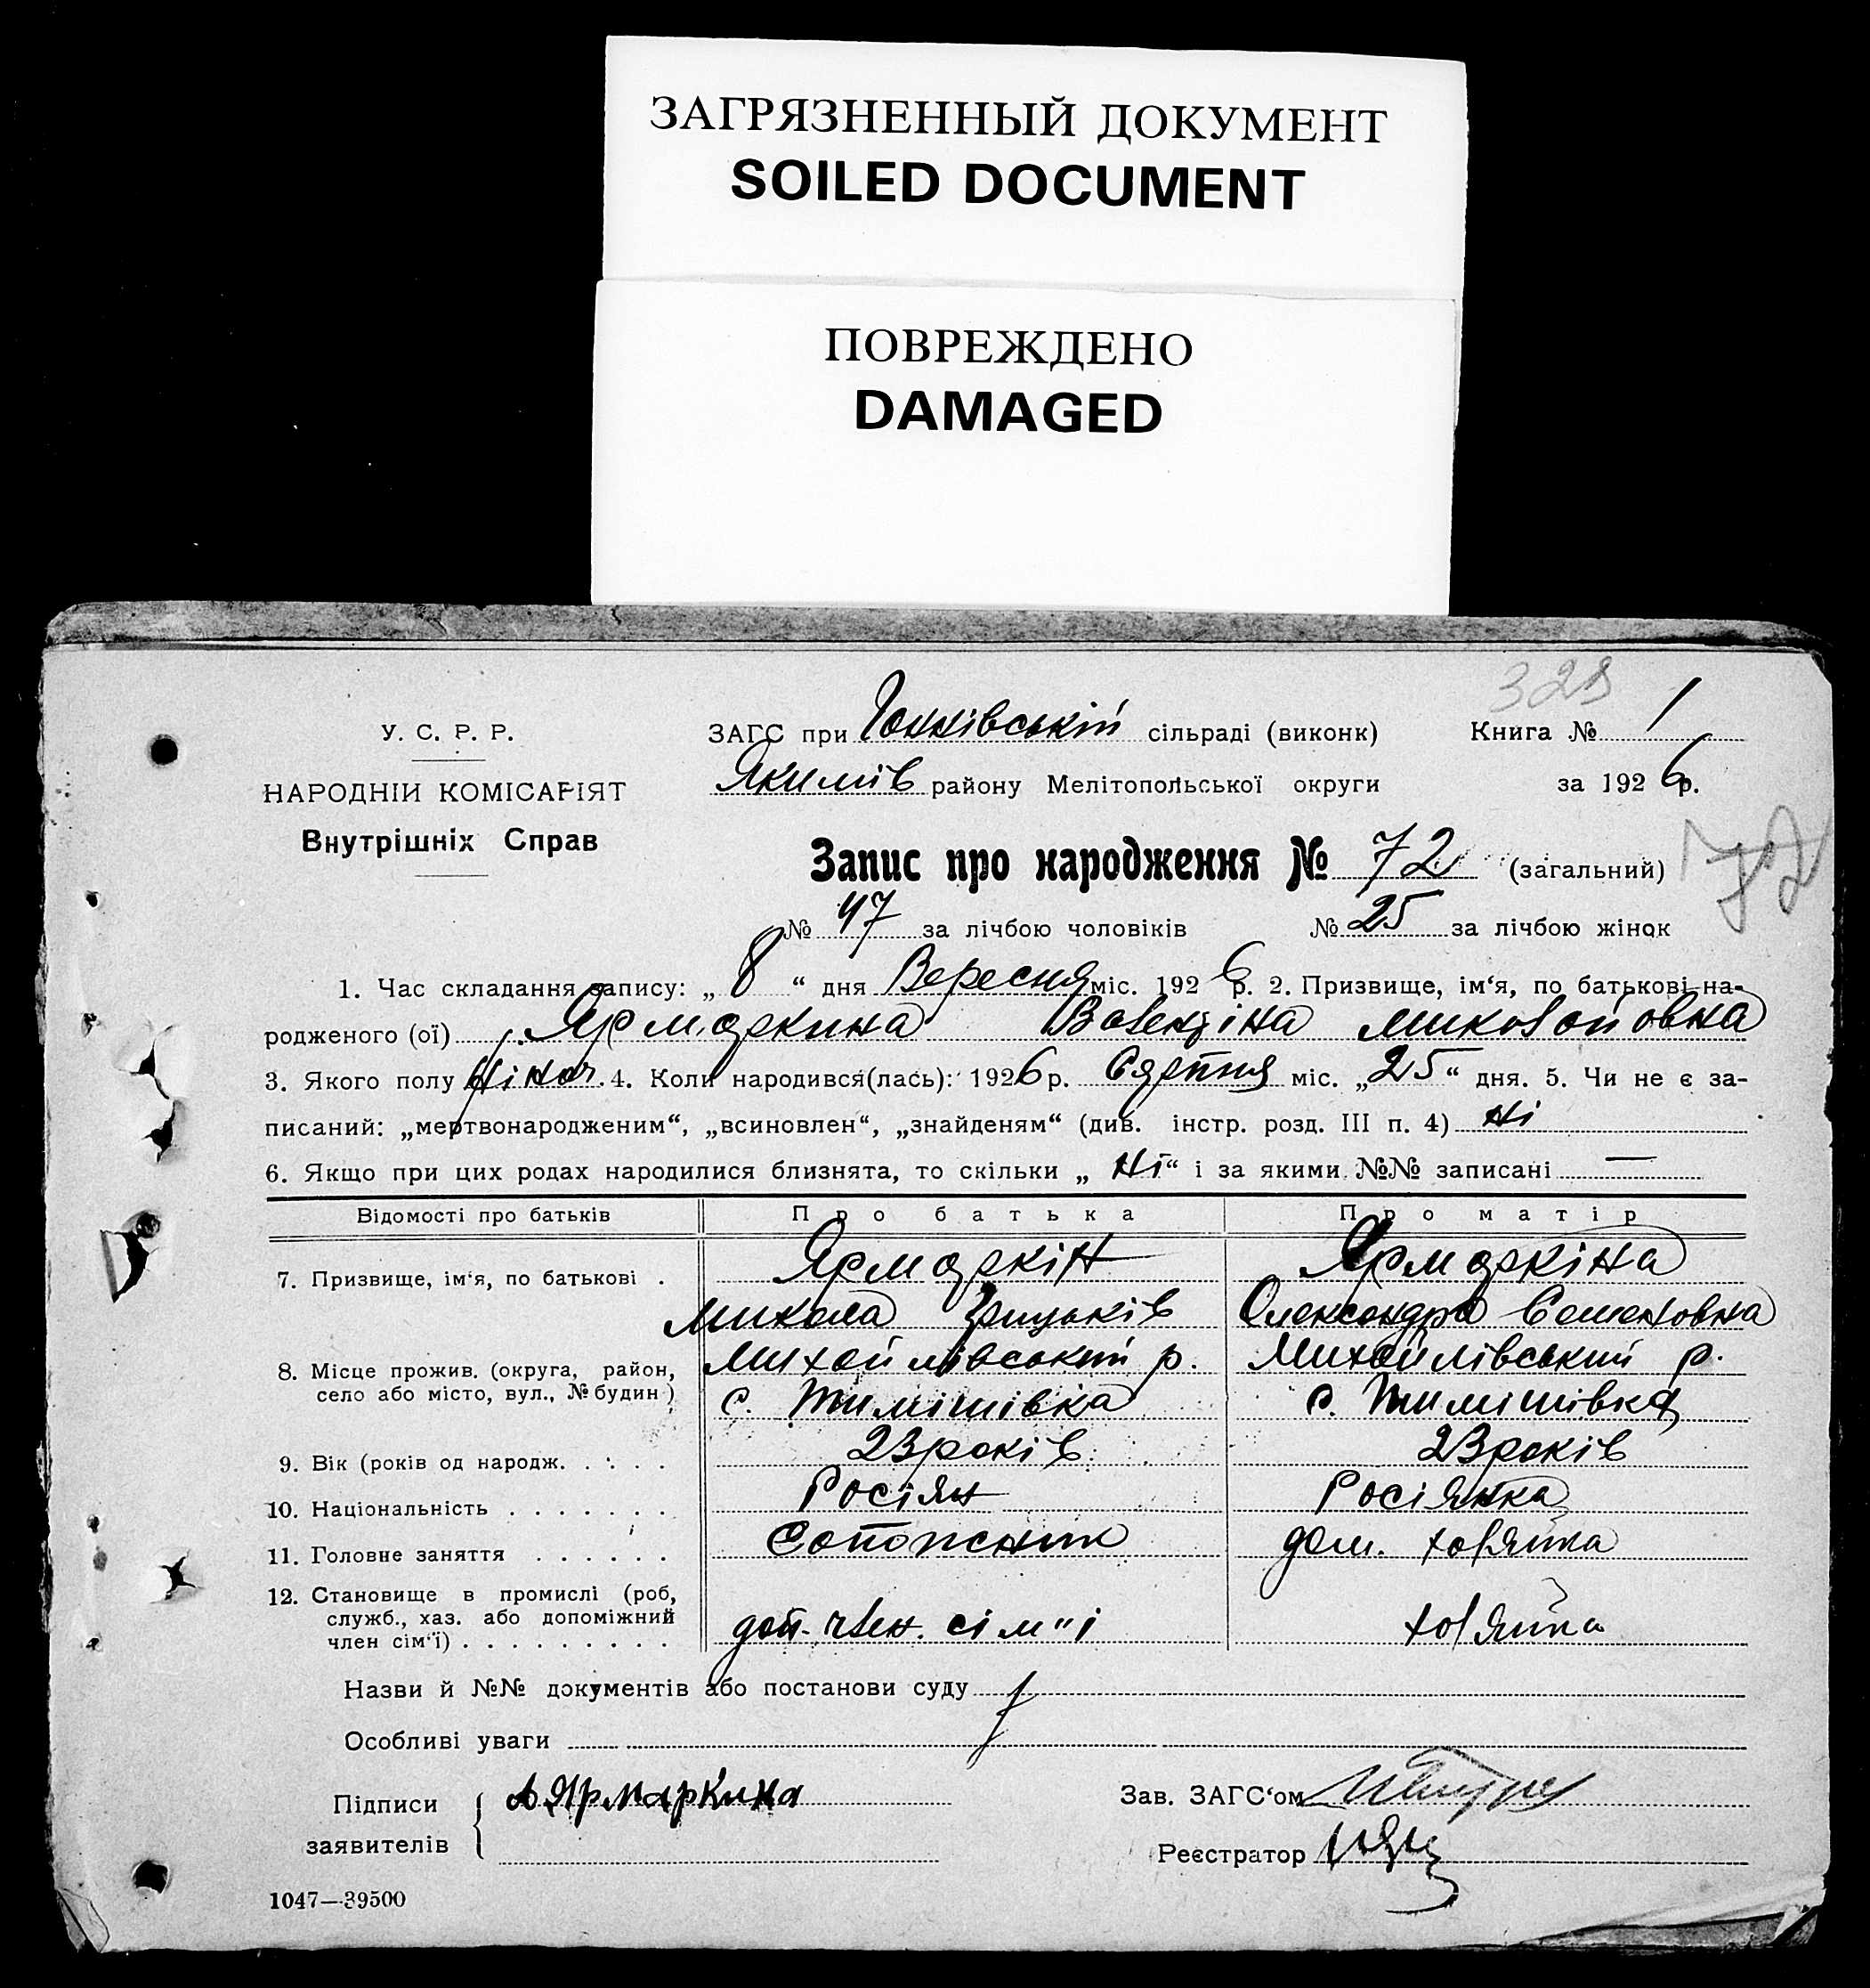 ЗАГРЯЗНЕННЫЙ ДОКУМЕНТ
SOILED DOCUMENT
ПОВРЕЖДЕНО
DAMAGED
328
У. С. Р. Р.
НАРОДНІЙ КОМІСАРІЯТ
Внутрішніх Справ
ЗАГС при сільраді (виконк) Книга № 1
Якимів району Мелітопольської округи за 1926 р.
Запис про народження № 72 (загальний)
77
№ 47 за лічбою чоловіків № 25 за лічбою жінок
1. Час складання запису: „ 8 “ дня Вересня міс. 1926 р. 2. Призвище, ім‘я, по батькові на-
родженого (ої) Ярмаркина Валенціна Миколайовна
3. Якого полу жіноч. 4. Коли народився(лась): 1926 р. Серпня міс. „25“ дня. 5. Чи не є за-
писаний: „мертвонародженим“, „всиновлен“, „знайденям“ (див. інстр. розд. III п. 4) ні
6. Якщо при цих родах народилися близнята, то скільки „ ні “ і за якими №№ записані —
Відомості про батьків Про батька Про матір
7. Призвище, ім‘я, по батькові . Ярмаркін Ярмаркіна
Микола Грицьків Олександра Семеновна
8. Місце прожив. (округа, район, село або місто, вул., № будин) Михайлівський р. Михайлівський р.
с. Тимішівка с. Тимішівка
9. Вік (років од народж. . . . . 23 років 23 років
10. Національність . . . . . . . Росіян Росіянка
11. Головне заняття . . . . . . Сапожник дом. хозяйка
12. Становище в промислі (роб, служб., хаз. або допоміжний член сім‘ї) . . . . . . . . . доп. член. сім"і хозяйка
Назви й №№ документів або постанови суду
Особливі уваги
Підписи заявителів { А Ярмаркина
Зав. ЗАГС‘ом
Реєстратор
1047—39500